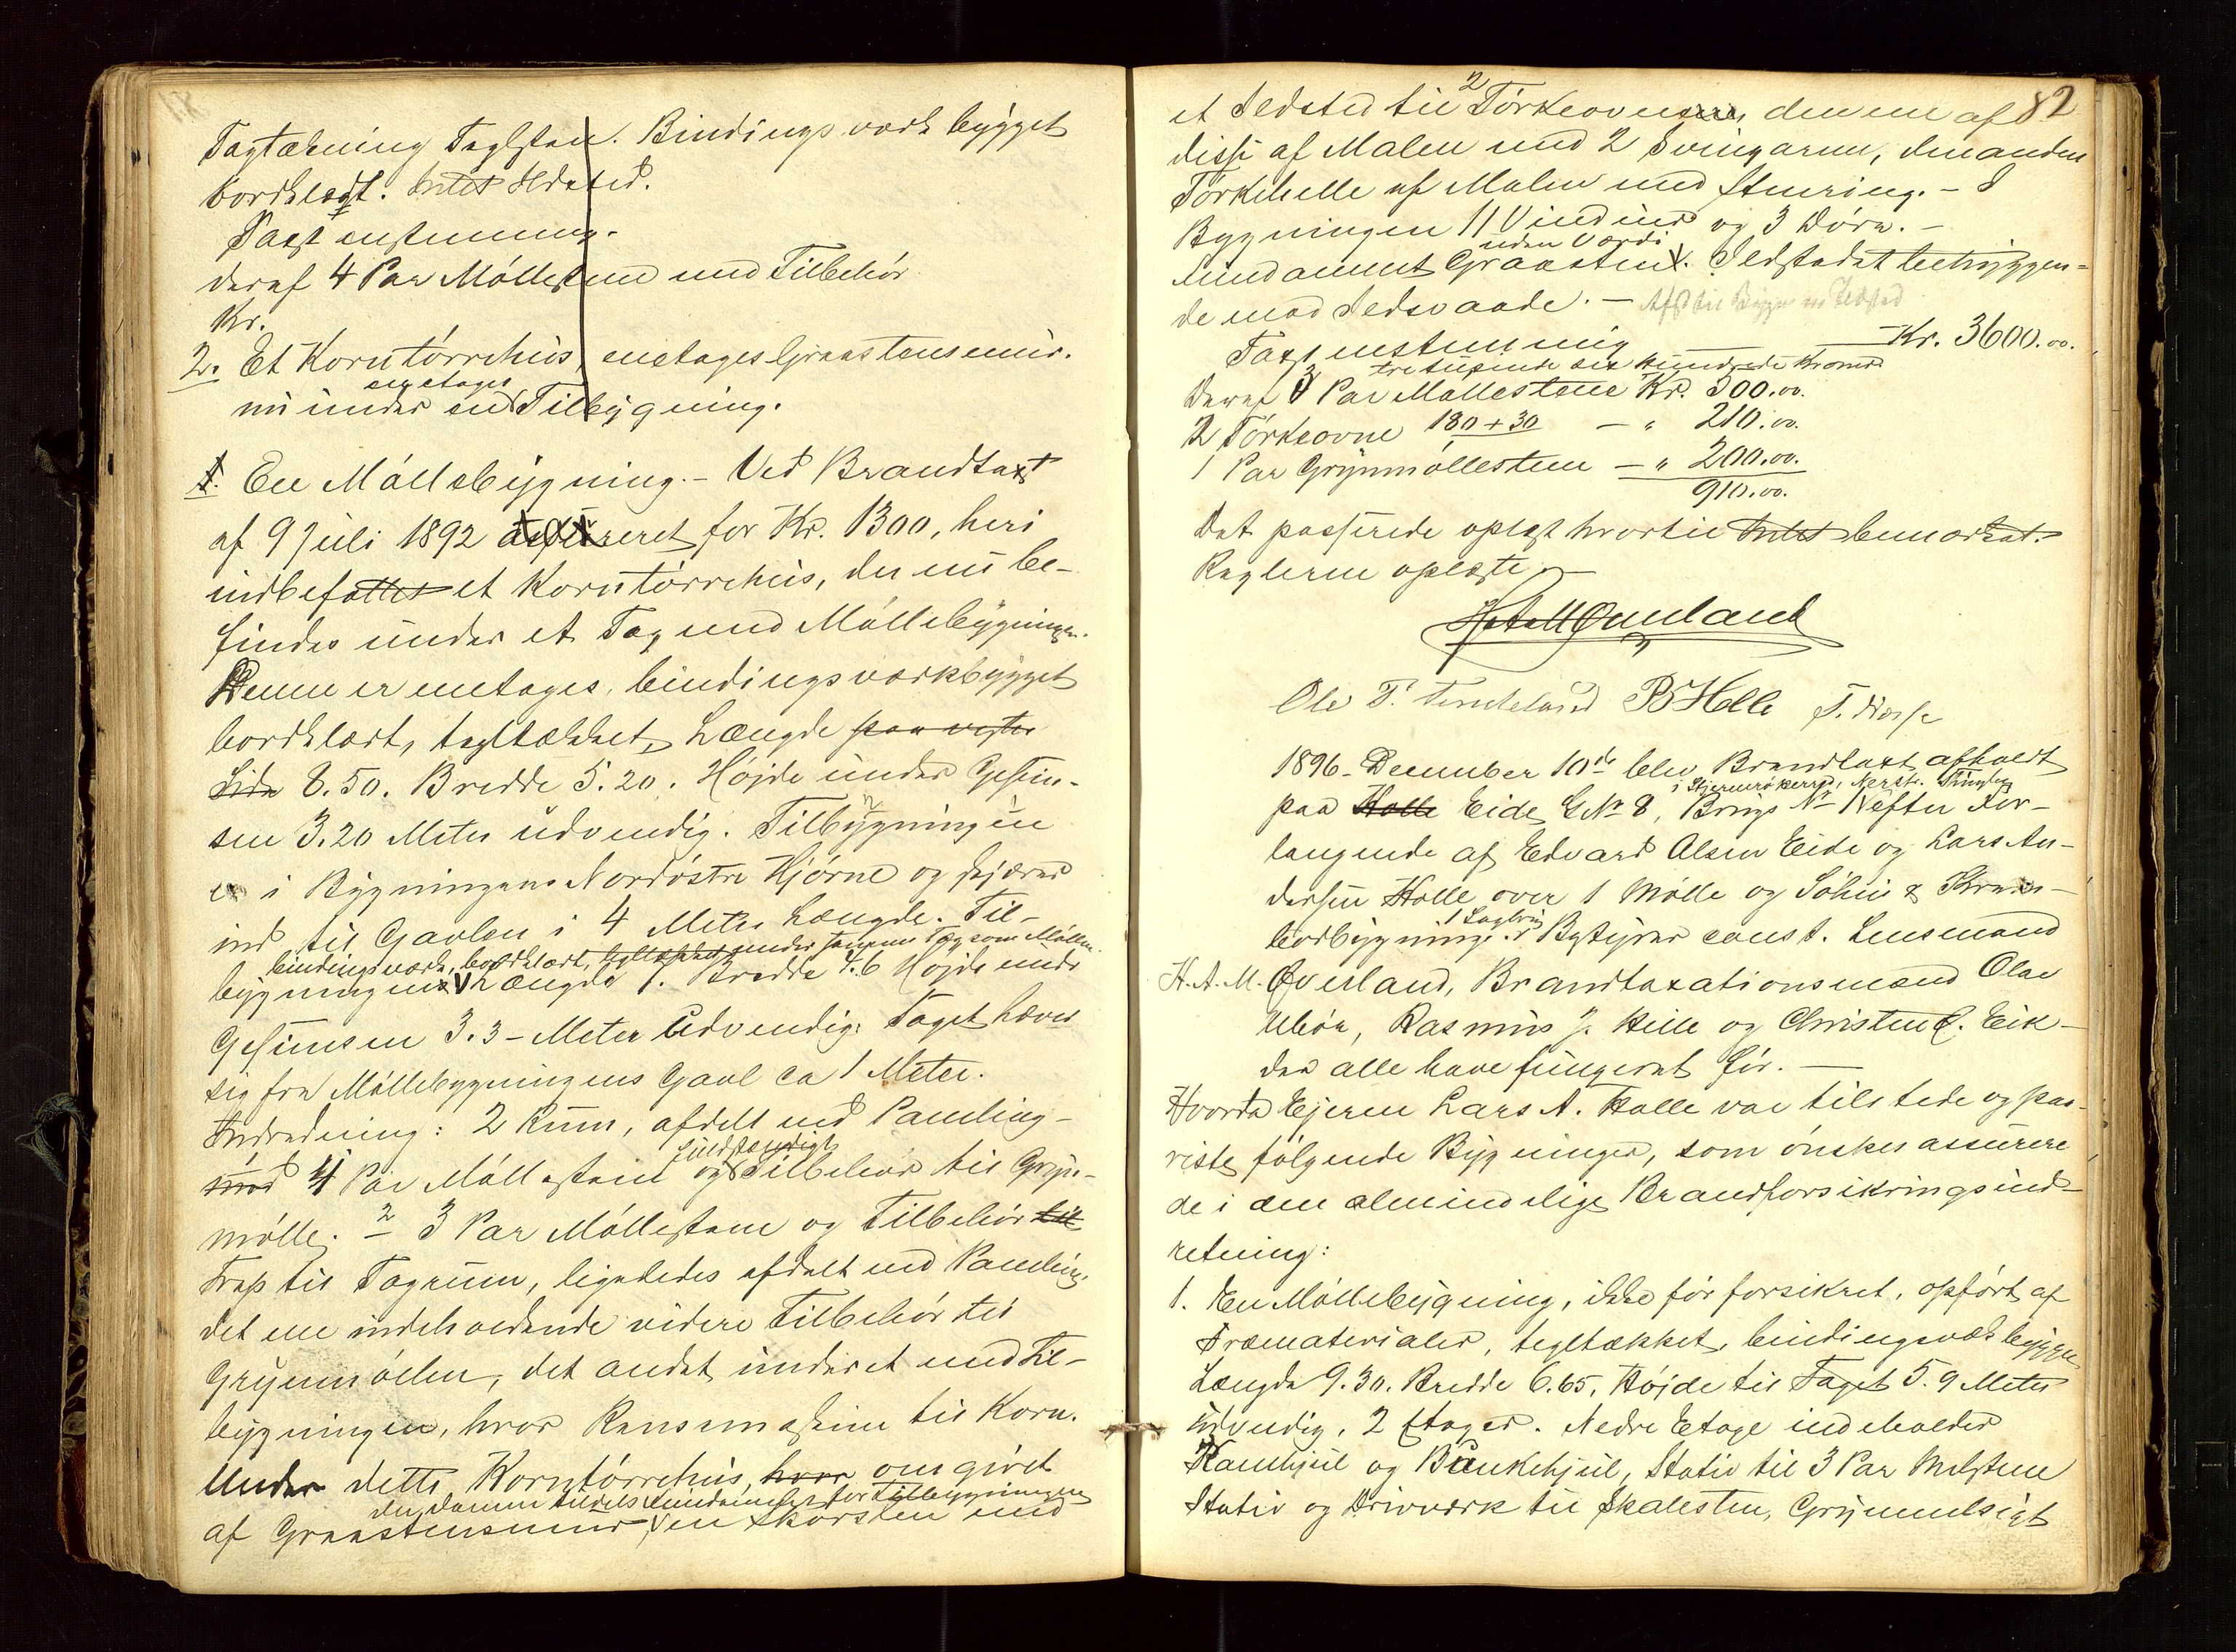 Tagtækning Taglsten. Bindingsværk bygget
bordklædt. Intet Ildsted.
Taxt enstemmig.
deraf 4 Par Möllestene med Tilbehör
Kr.
2. Et Korntörrehus, enetages Graastensmur.
nu under en enetages Tilbygning.
1. En Möllebygning. - Ved Brandtaxt
af 9 Juli 1892 assureret for Kr. 1300, heri
indbefattet et Korntörrehus, der nu be-
findes under et Tag med Möllebygningen.
Denne er enetages, bindingsværkbygget
bordklædt, tagltækket, Længde paa vestre
Side 8.50. Bredde 5.20. Höjde under Gesim-
sen 3.20 Meter udvendig. Tilbygningen
er i Bygningens Nordöstre Hjörne og skjærer
ind til Gavlen i 4 Meters Længde. Til-
bindingsværk, bordklædt, tagltækket under samme Tag som Möllen.
bygningens Længde 7. Bredde 4.6 Höjde under
Gesimsen 3.3 - Meter Udvendig. Taget hæver
sig fra Möllebygningens Gavl ca 1 Meter.
Indredning: 2 Rum, afdelt med Panling -
med 4 Par Möllestene og fuldstændigt Tilbehör til Gryn-
mölle. 2 3 Par Möllestene og Tilbehör til
Trap til Tagrum, ligeledes afdelt med Panling,
det ene indeholdende videre Tilbehör til
Grynmöllen, det andet underet med Til-
bygningen, hvor Rensemaskine til Korn.
Under dette Korntörrehus, hvor omgivet
der danner tildels Fundament for Tilbygningen
af Graastensmur, en Skorsten med
82
et Ildsted til 2 Törkeovnene, den ene af
disse af Malm med 2 Svingarme, den anden
Törkehelle af Malm med Stenring. - I
Bygningen 11 Vinduer og 3 Döre. -
uden Værdi
Fundament Graasten. Ildstedet betryggen-
de mod Ildsvaade. -
Taxt enstemmig Kr. 3600.00.
tretusinde sex hundrede Kroner
Deraf 3 Par Möllestene Kr. 500.00.
2 Törkeovne 180 + 30 - " 210.00.
1 Par Grynmöllestene - " 200.00.
910.00.
Det passerede oplæst hvortil Intet bemærket.
Reglerne oplæste. -
H A M Øverland
Ole T. B Helle
1896 - December 10de blev Brandtaxt afholdt
i Hjernerökerred, Nerstr. Thinglag
paa Halle Eide G No 8, Brugs No 1 efter For-
langende af Edvard Olsen Eide og Lars An-
dersen Halle over 1 Mölle og
1 Sagbrug
bordbygninger. Bestyrer const. Lensmand
H. A. M. Øverland, Brandtaxationsmænd Olav
Ubör, Rasmus J. Hille og Christen C. Eik-
der alle have fungeret för. -
Hvorda Ejeren Lars A. Halle var tilstede og paa-
viste fölgende Bygninger, som önskes assurere
de i den almindelige Brandforsikringsind-
retning:
1. En Möllebygning, ikke för forsikret, opfört af
Træmaterialer, tegltækket, bindingsværkbygget
Længde 9.30. Bredde 6.65. Höjde til Taget 5.9 Meter
udvendig, 2 Etager. Nedre Etage indeholder
Kamhjul og Bunkehjul, Stativ til 3 Par Mölstene
Stativ og Drivværk til Skalesten, Grynmelsigt